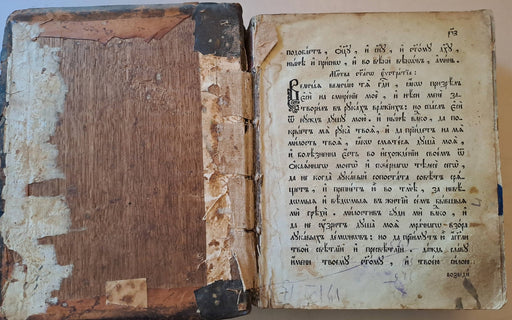 рл҃з
подобаетъ, ѻ҆ц҃ꙋ̀, и҆ сн҃ꙋ, и҆ ст҃омꙋ дх҃ꙋ,
нн҃ѣ и҆ при́снѡ, и҆ во вѣ́ки вѣкѡ́въ, а҆ми́нь.
Мл҃тва ст҃а́гѡ є҆ѵстра́тїа:
Велича́ѧ велича́ю тѧ̀ гд҇и, ꙗ҆́кѡ призрѣ́лъ
є҆сѝ на смире́нїе моѐ, и҆ нѣ́си менѐ за
твори́лъ в̾ рꙋка́хъ вра́жїихъ: но сп҃слъ є҆сѝ
ѿ нꙋ́ждъ дꙋ́шꙋ мою̀. и҆ нн҃ѣ влⷣко, да по
кры́етъ мѧ̀ рꙋка̀ твоѧ̀, и҆ да прїи́детъ на мѧ̀
млⷭть твоѧ̀, ꙗ҆́кѡ смѧте́сѧ дꙋша̀ моѧ̀,
и҆ болѣ́зненна є҆́сть во и҆схожде́нїи свое́мъ ѿ
ѻ҆каѧ́ннагѡ моегѡ̀ и҆ скве́рнагѡ тѣ́лесе сегѡ̀,
да не когда̀ лꙋка́вый сопоста́та совѣ́тъ срѧ́
щетъ, и҆ припне́тъ ю҆̀ во тмѣ̀, за невѣ́
домыѧ и҆ вѣ́домыѧ в̾ житїѝ се́мъ бы́вшыѧ
мѝ грѣхѝ. ми́лостивъ бꙋ́ди мѝ влⷣко, и҆
да не ᲂу҆́зритъ дꙋша̀ моѧ̀ мра́чнагѡ взо́ра
лꙋка́выхъ де́мѡнѡвъ: но да прїи́мꙋтъ ю҆̀ а҆́гг҃ли
твоѝ свѣ́тлїи и҆ пресвѣ́тлїи. да́ждь сла́вꙋ
и҆́мени твоемꙋ̀ ст҃о́мꙋ, и҆ твое́ю си́лою
возведѝ